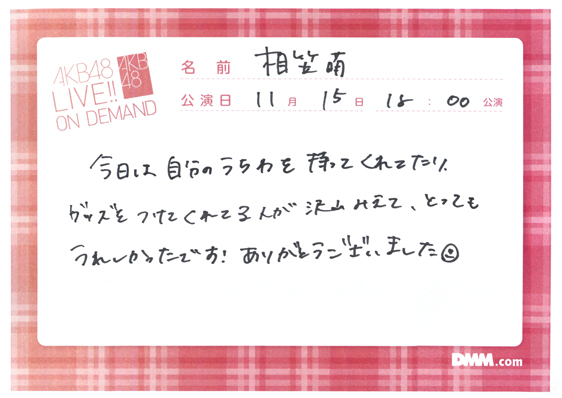 AKB48
LIVE!!
ON DEMAND
AKB
48
名前 相笠萌
公演日 11月 15日 18:00 公演
今日は自分のうちわを持ってくれてたり、
グッズをつけてくれてる人が沢山みえて、とっても
うれしかったです!ありがとうございました☺
DMM.com